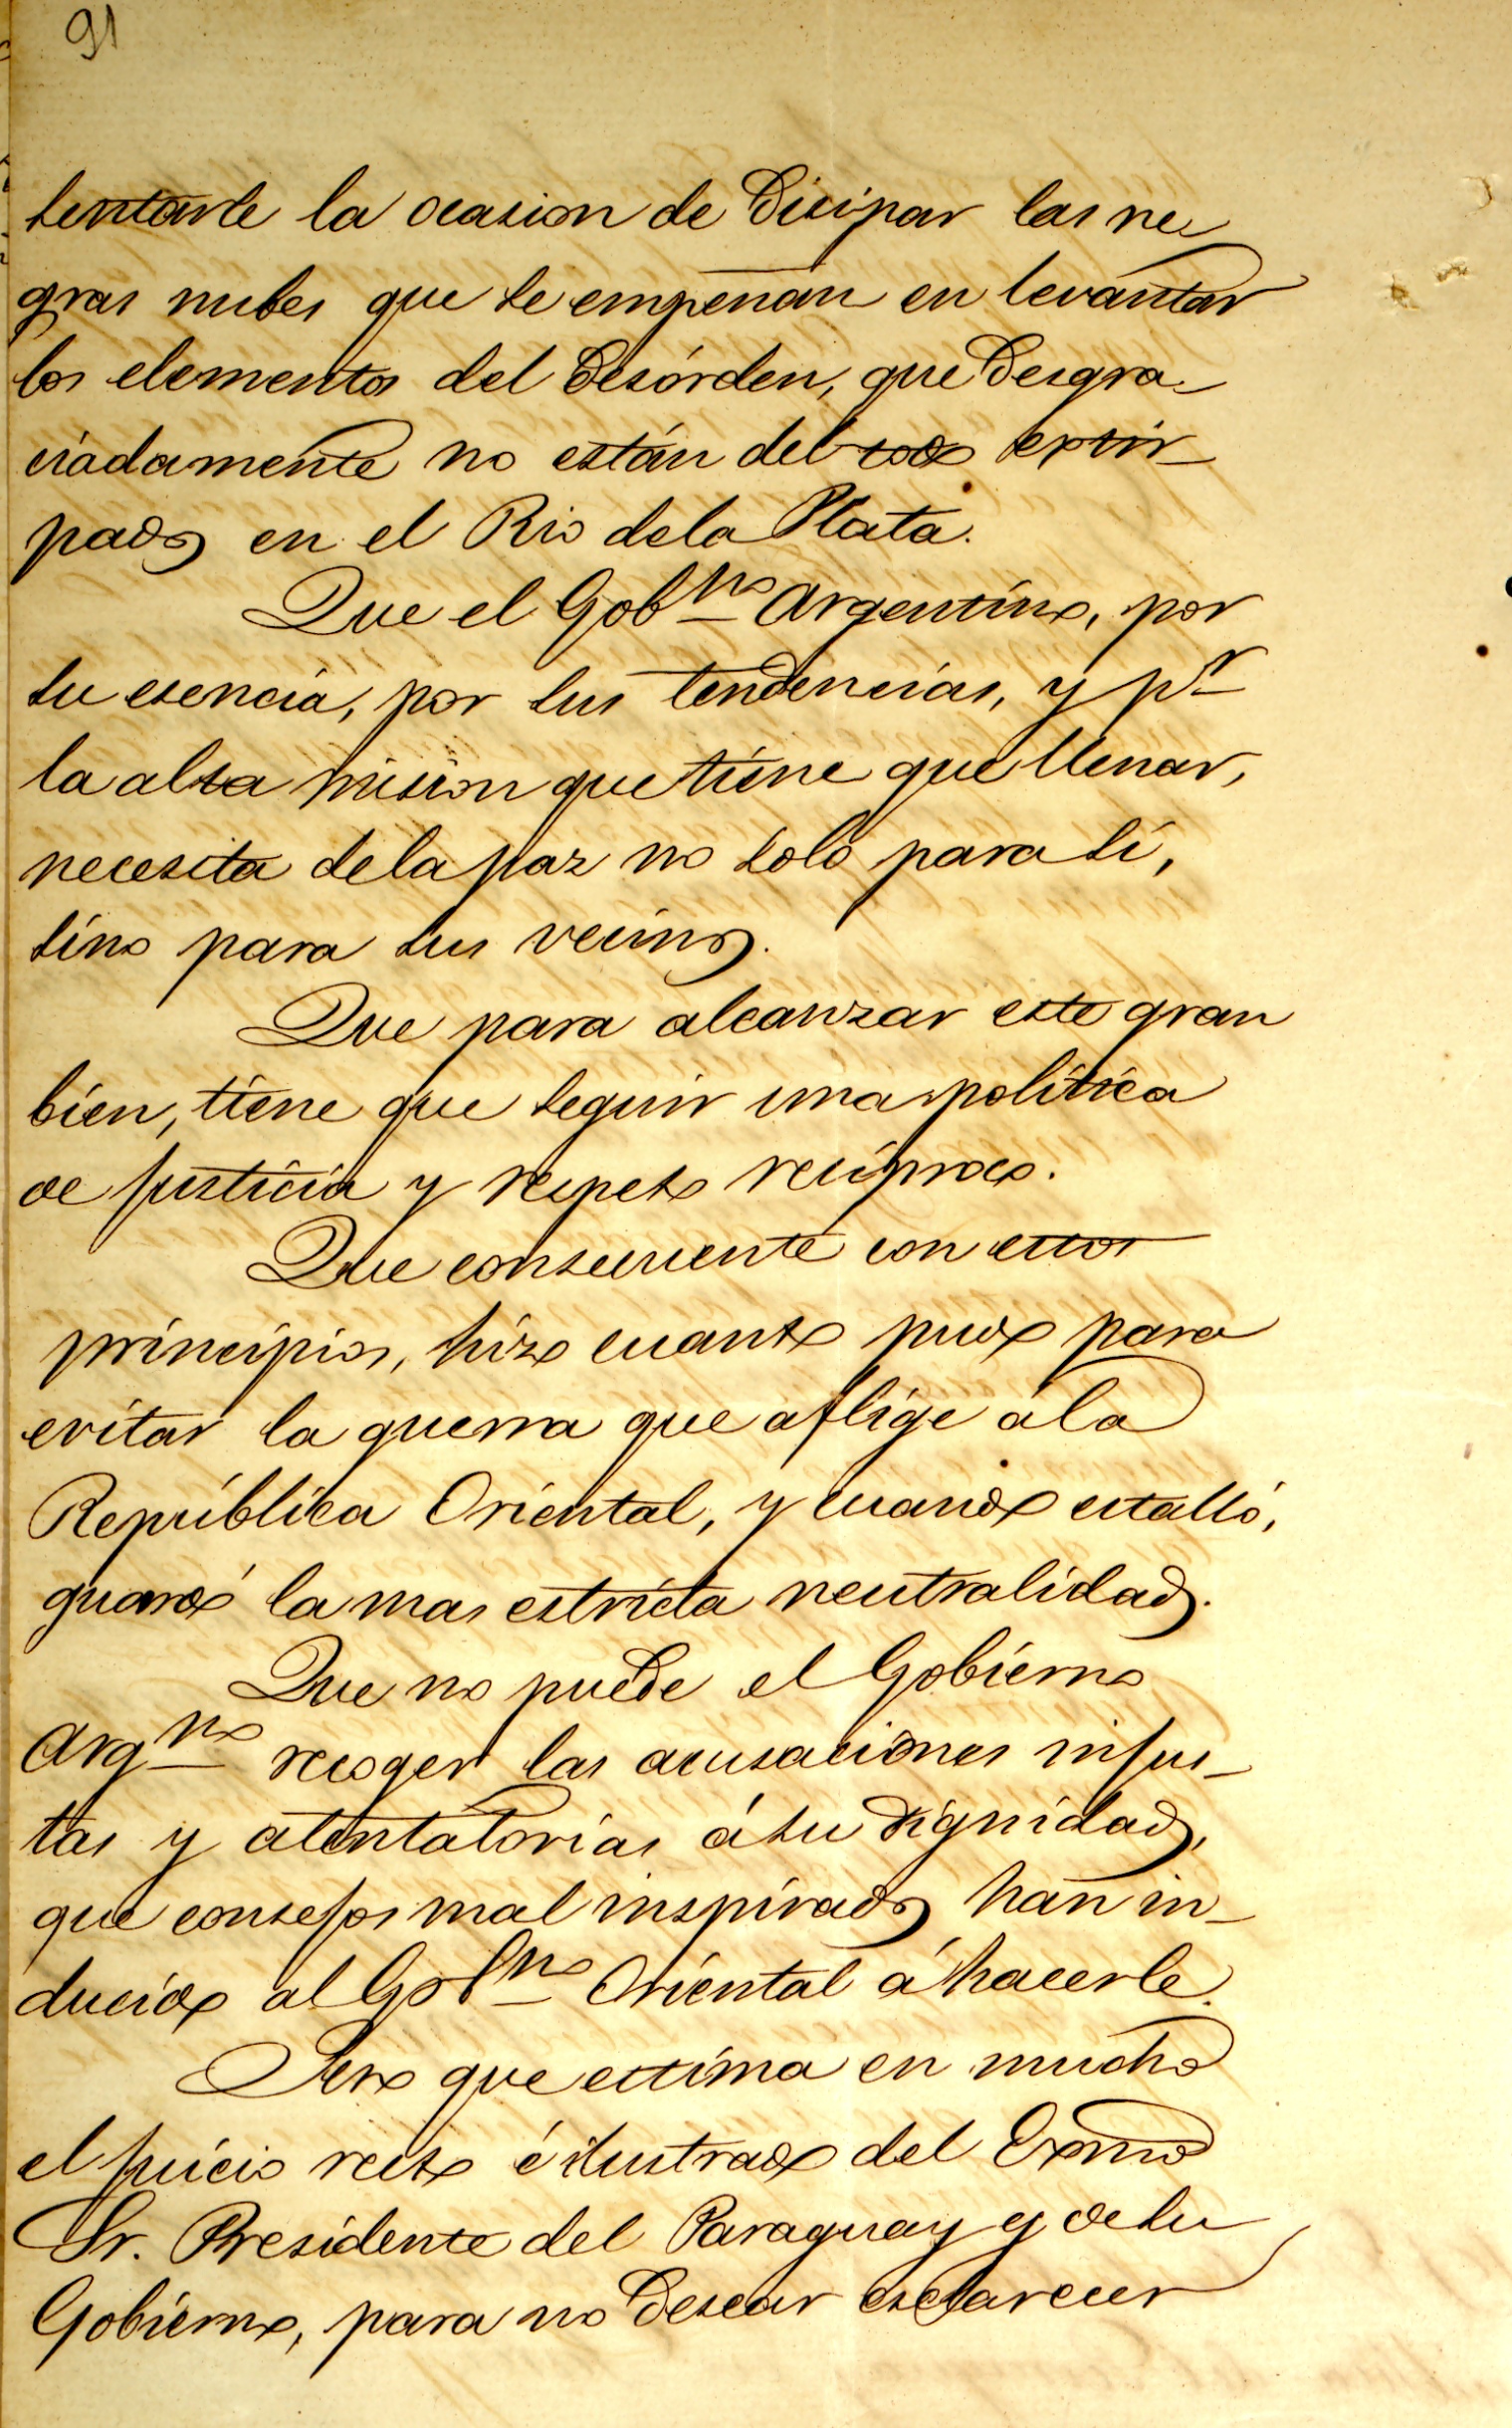 91
sentarle la ocasion de disipar las ne
gras nubes que se empeñan en levantar
los elementos del desórden, que desgra-
ciadamente no están del todo extir-
pados en el Rio dela Plata.
Que el Gob.no Argentino, por
su esencia, por sus tendencias, y p.r
la alta mision que tiene que llenar,
necesita dela paz no solo para sí,
sino para sus vecinos.
Que para alcanzar este gran
bien, tiene que seguir una política
de justicia y respeto recíproco.
Que consecuente con estos
principios, hizo cuanto pudo para
evitar la guerra que aflige á la
República Oriental, y cuando estalló,
guardó la mas estricta neutralidad.
Que no puede el Gobierno
Arg.no recoger las acusaciones injus-
tas y atentatorias á su dignidad,
que consejos mal inspirados han in-
ducido al Gob.no Oriental á hacerle.
Pero que estima en mucho
el juicio recto é ilustrado del Exmo
Sr. Presidente del Paraguay y de su
Gobierno, para no desear esclarecer